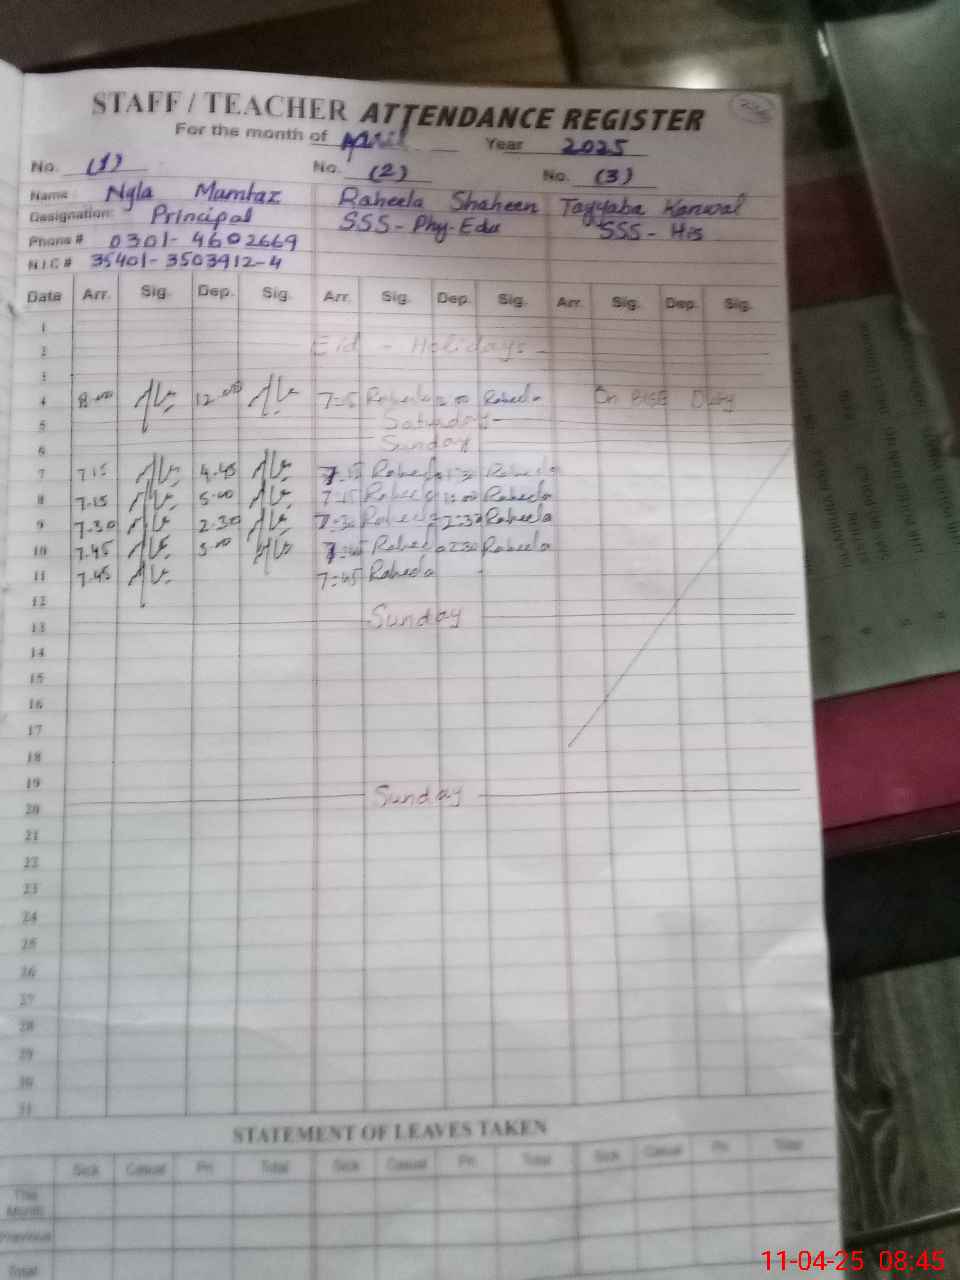 STAFF / TEACHER ATTENDANCE REGISTER
For the month of April Year 2025
No. (1) No. (2) No. (3)
Name: Nyla Mumtaz Raheela Shaheen Tayyaba Kanwal
Designation: Principal SSS-Phy-Edu SSS-His
Phone # 0301-4602669
N.I.C # 35401-3503912-4
Date Arr. Sig. Dep. Sig. Arr. Sig. Dep. Sig. Arr. Sig. Dep. Sig.
1
2 Eid - Holidays -
3
4 8-00 12-00 Raheela Raheela On BISE Duty
5 Saturday-
6 Sunday
7 7.15 4.45 7-15 Raheela 1:30 Raheela
8 7.15 5-00 7:15 Raheela Raheela
9 7.30 2.30 7:30 Raheela 2:30 Raheela
10 7.45 3-00 7:45 Raheela 2:30 Raheela
11 7.45 7:45 Raheela -
12
13 Sunday
14
15
16
17
18
19
20 Sunday
21
22
23
24
25
26
27
28
29
30
31
STATEMENT OF LEAVES TAKEN
Sick Casual Pri Total Sick Casual Pri Total Sick Casual Pri Total
This Month
Previous
Total
11-04-25 08:45